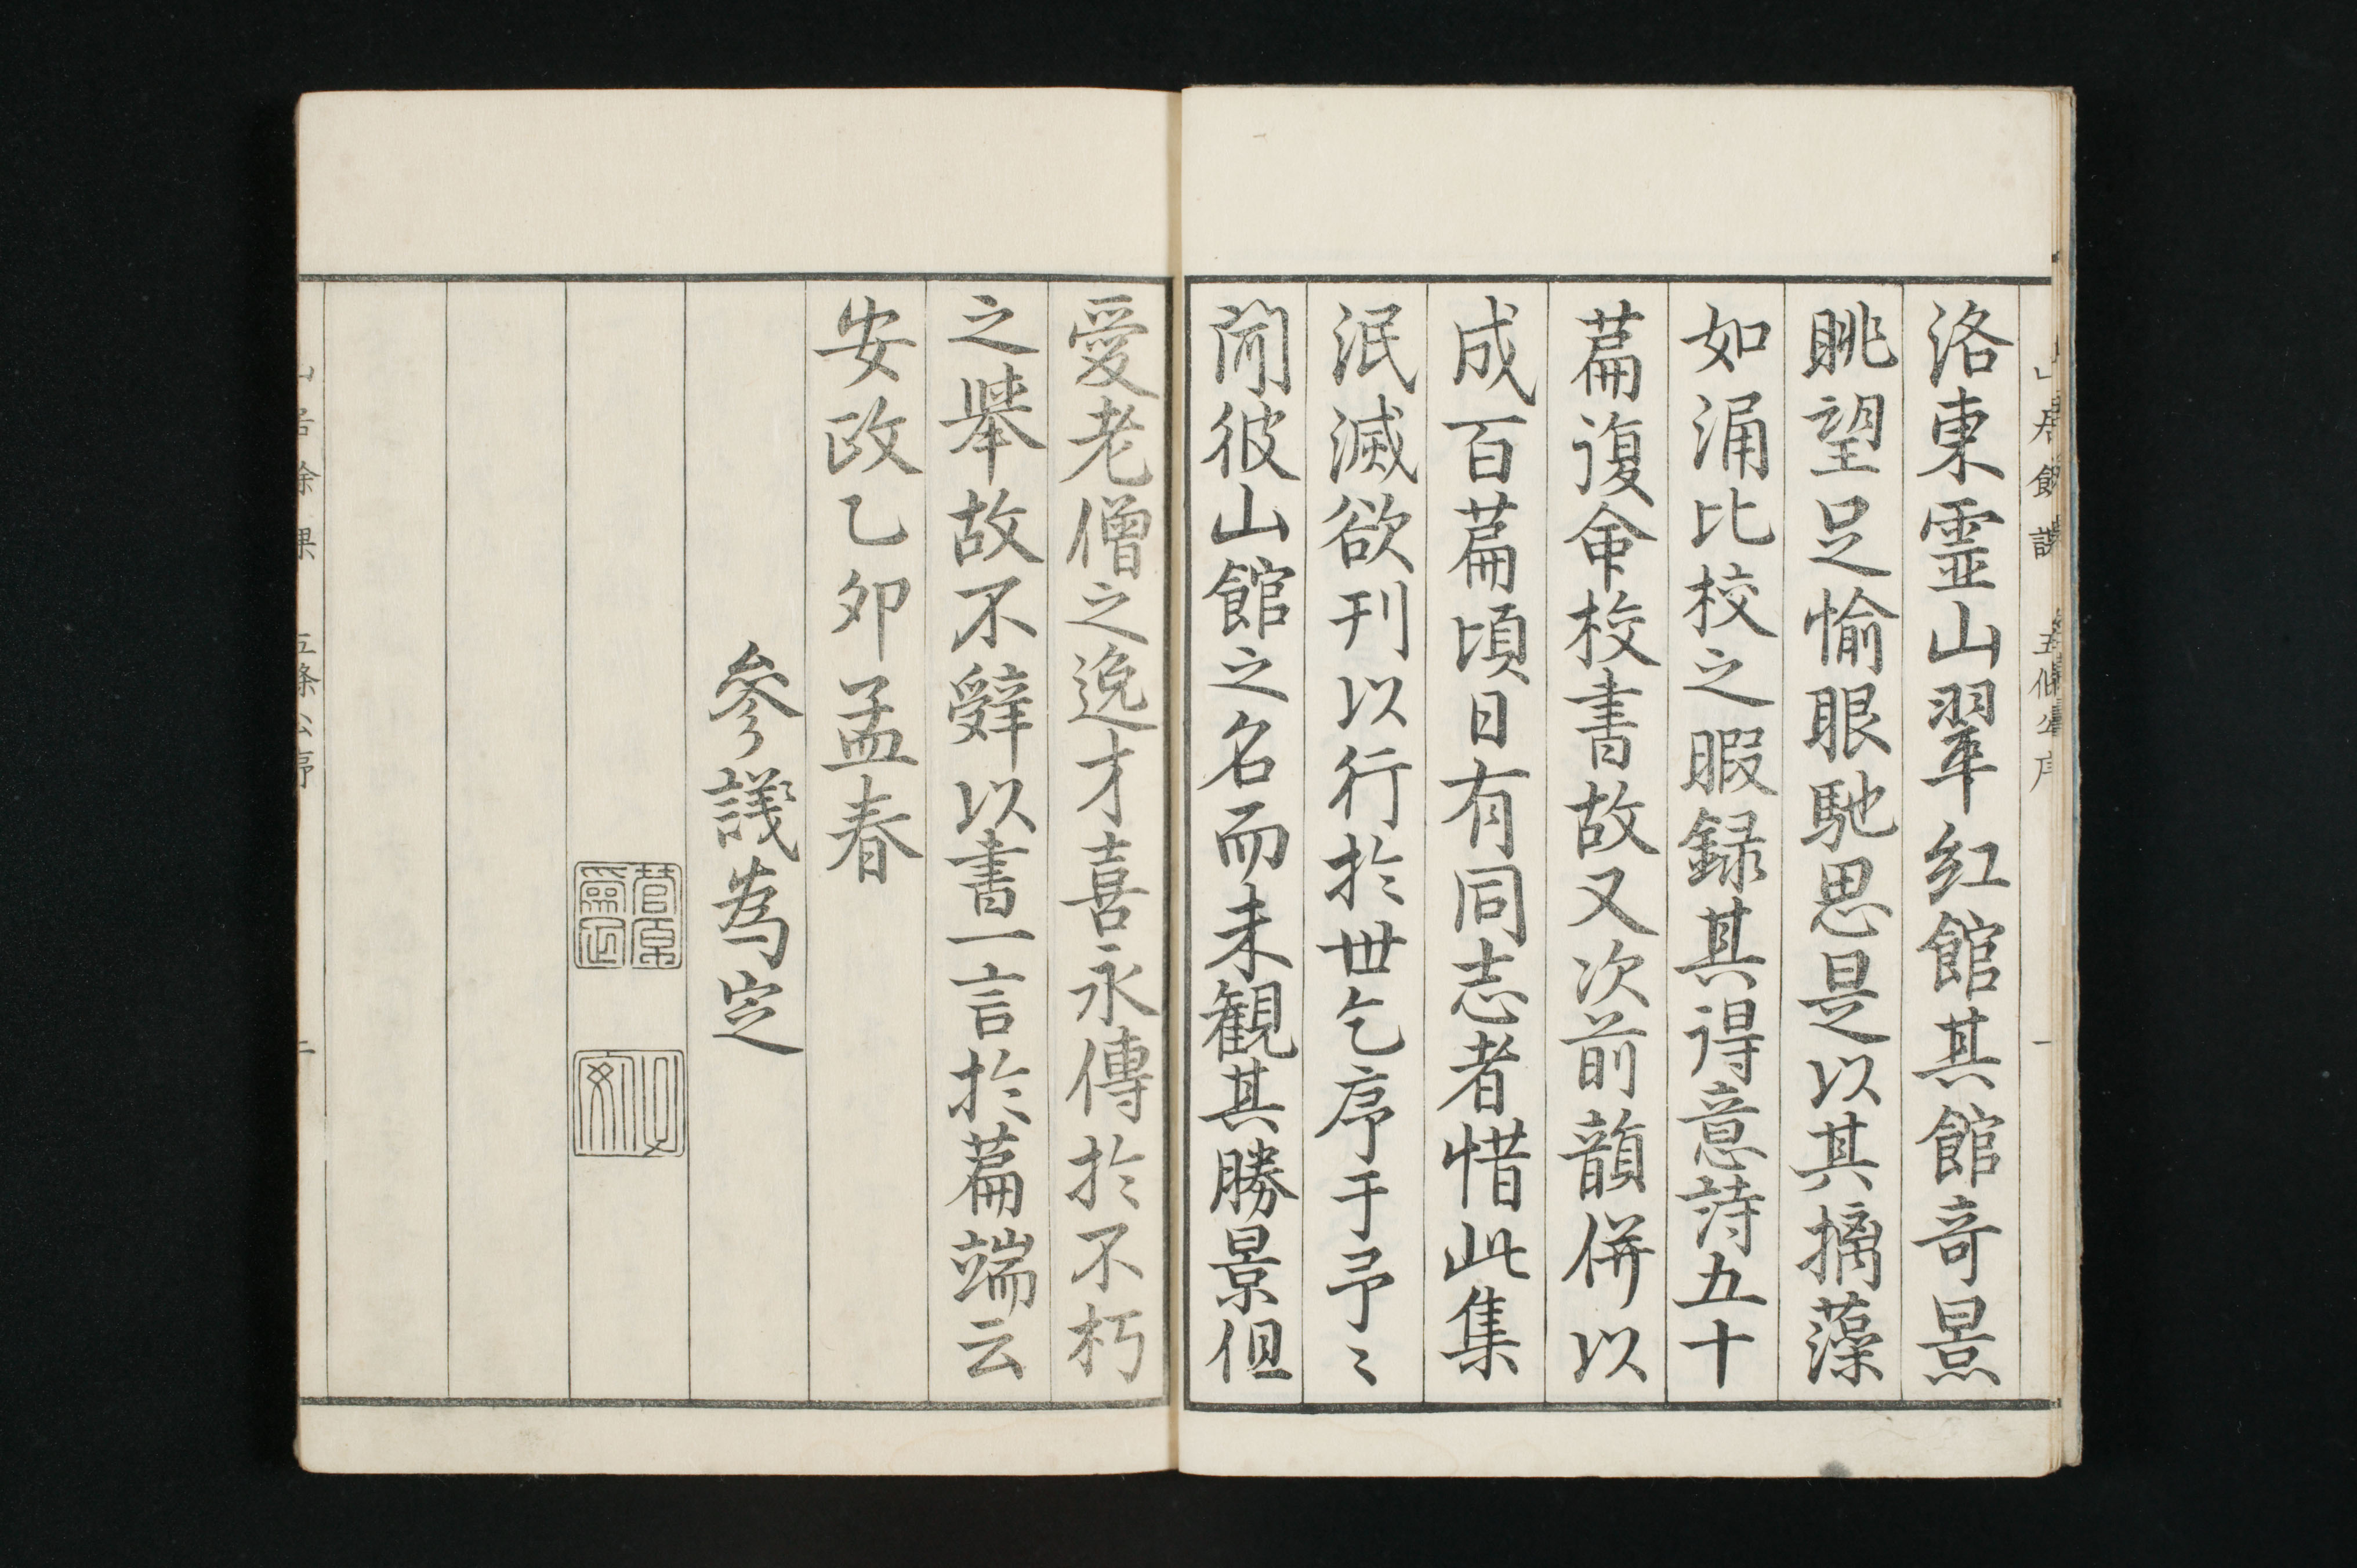 洛東霊山翠紅館其館奇景
眺望足愉眼馳思是以其摛藻
如涌比校之暇録其得意詩五十
萹復命校書故又次前韻併以
成百萹頃日有同志者惜此集
泯滅欲刊以行於世乞序于予〻
聞彼山館之名而未観其勝景但
愛老僧之逸才喜永傳於不朽
之舉故不辭以書一言於萹端云
安政乙卯孟春
參議為定
菅原為定
山居餘課 五條公序 一
山居餘課 五條公序 二